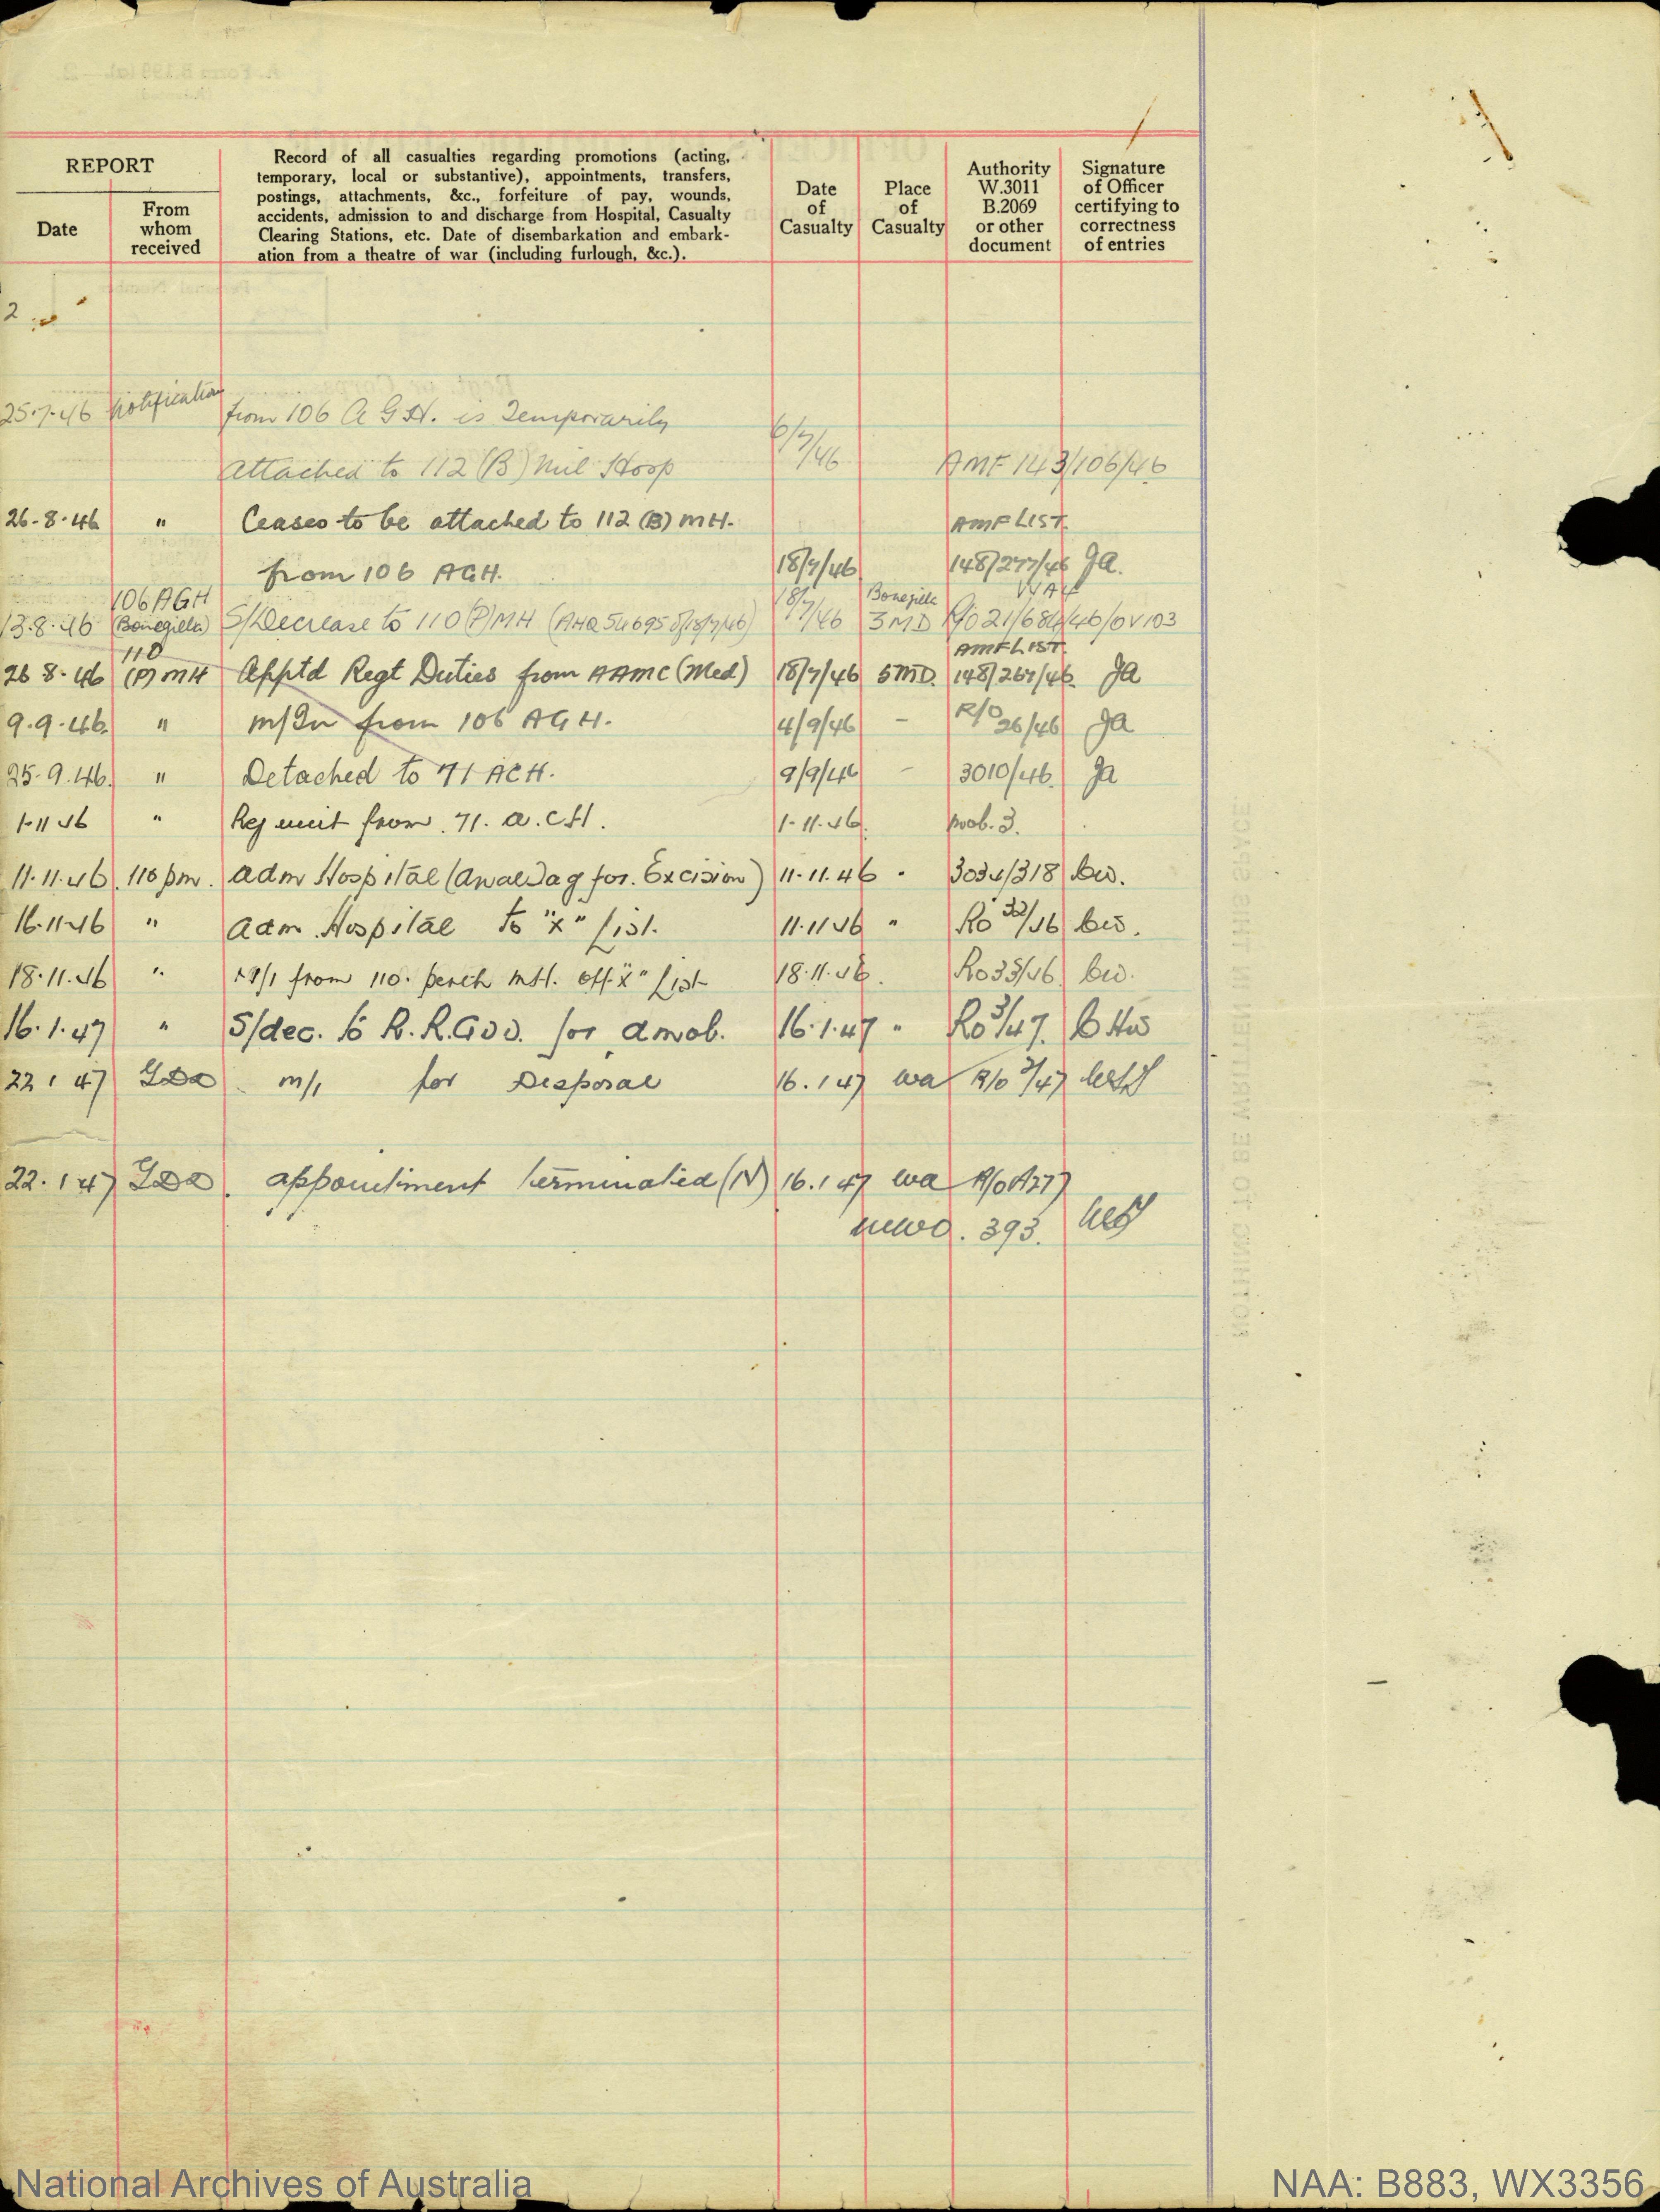 REPORT
Date
From
whom
received
Record of all casualties regarding promotions (acting,
temporary, local or substantive), appointments, transfers,
postings, attachments, &c., forfeiture of pay, wounds,
accidents, admission to and discharge from Hospital, Casualty
Clearing Stations, etc. Date of disembarkation and embark-
ation from a theatre of war (including furlough, &c.).
Date
of
Casualty
Place
of
Casualty
Authority
W.3011
B.2069
or other
document
Signature
of Officer
certifying to
correctness
of entries
2
25.7.46 Notification from 106 A G H. is Temporarily
attached to 112 (B) Mil Hosp 6/7/46 AMF 143/106/46
26-8-46 " Ceases to be attached to 112 (B) MH. AMF LIST.
from 106 AGH. 18/7/46 148/277/46 Ja.
106 AGH 18/7 Bonegilla
13.8.46 (Bonegilla) S/Decrease to 110 (P) MH (AHQ 54695 of 18/7/46) /46 3 MD R/O 21/684/46/OV103
110 AMF LIST.
26 8.46 (P) MH Apptd Regt Duties from AAMC (Med) 18/7/46 5MD. 148/267/46 Ja
9.9.46. " M/In from 106 AGH. 4/9/46 - R/O 26/46 Ja
25.9.46. " Detached to 71 ACH. 9/9/46 - 3010/46. Ja
1-11 46 " Rej unit from 71. A.C.H. 1-11.46. Mob. 3.
11.11.46. 110 pm. Adm Hospital (Anal Tag for. Excision) 11-11.46 " 3034/318
16.11.46 " Adm Hospital to "X" List. 11.11 46 " Ro 33/46
18.11.46 " from 110. Perth MH. off "X" List 18.11.46. Ro 35/46
16.1.47 " S/dec. to R.R.GDD. for demob. 16.1.47 " Ro 3/47.
22 1 47 GDD M/I for Disposal 16.1 47 WA R/O 3/47
22.1 47 GDD. Appointment terminated (N) 16.1 47 WA R/O A27)
393.
National Archives of Australia
NAA: B883, WX3356